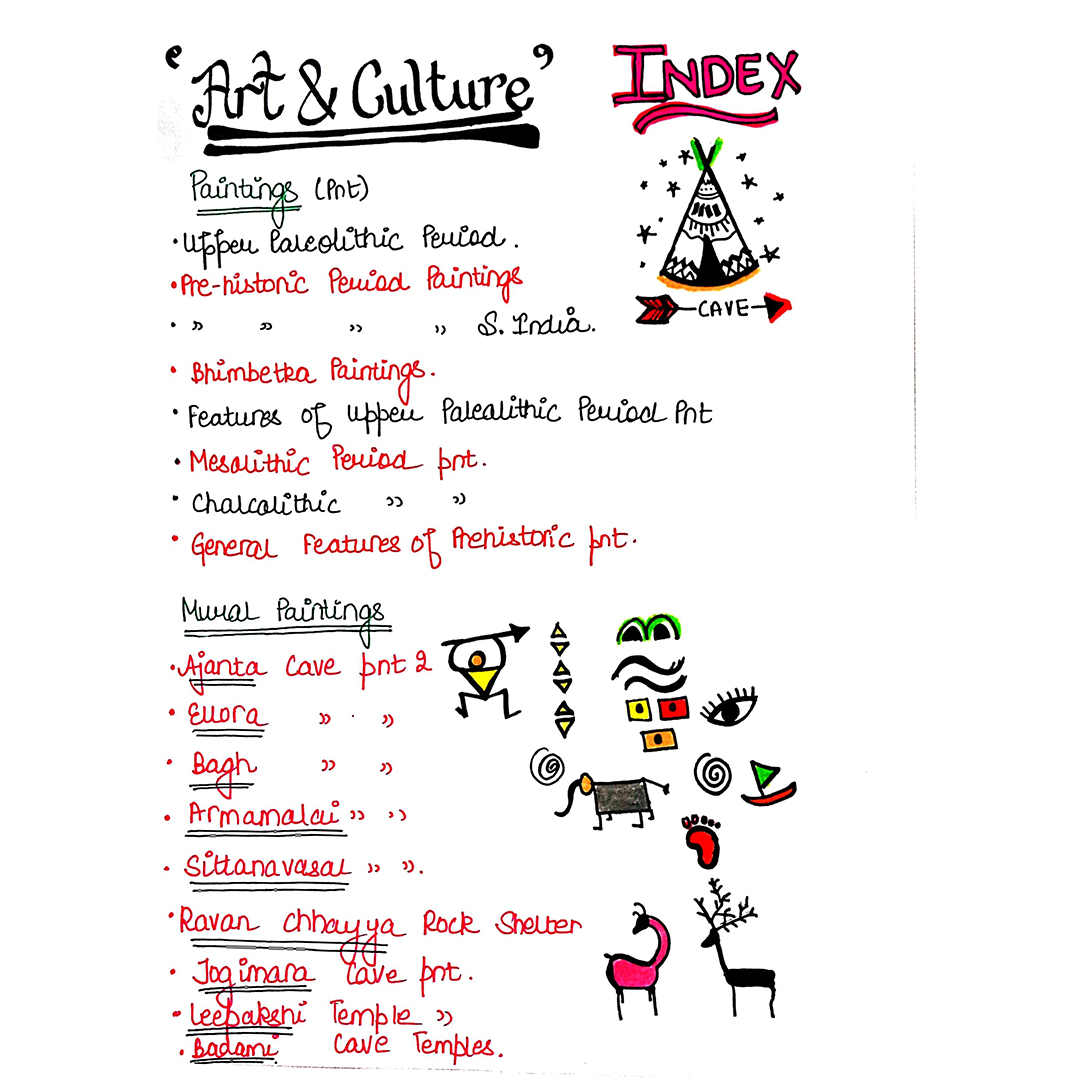 'Art & Culture'
INDEX
Paintings (Pnt)
• Upper Paleolithic Period.
• Pre-historic Period Paintings
• » » » » S. India.
• Bhimbetka Paintings.
• Features of Upper Palealithic Period Pnt
• Mesolithic Period pnt.
• Chalcolithic » »
• General Features of Prehistoric pnt.
CAVE
Mural Paintings
• Ajanta Cave pnt 2
• Ellora » »
• Bagh » »
• Armamalai » »
• Sittanavasal » ».
• Ravan Chhayya Rock Shelter
• Jogimara Cave pnt.
• Leepakshi Temple »
• Badami Cave Temples.